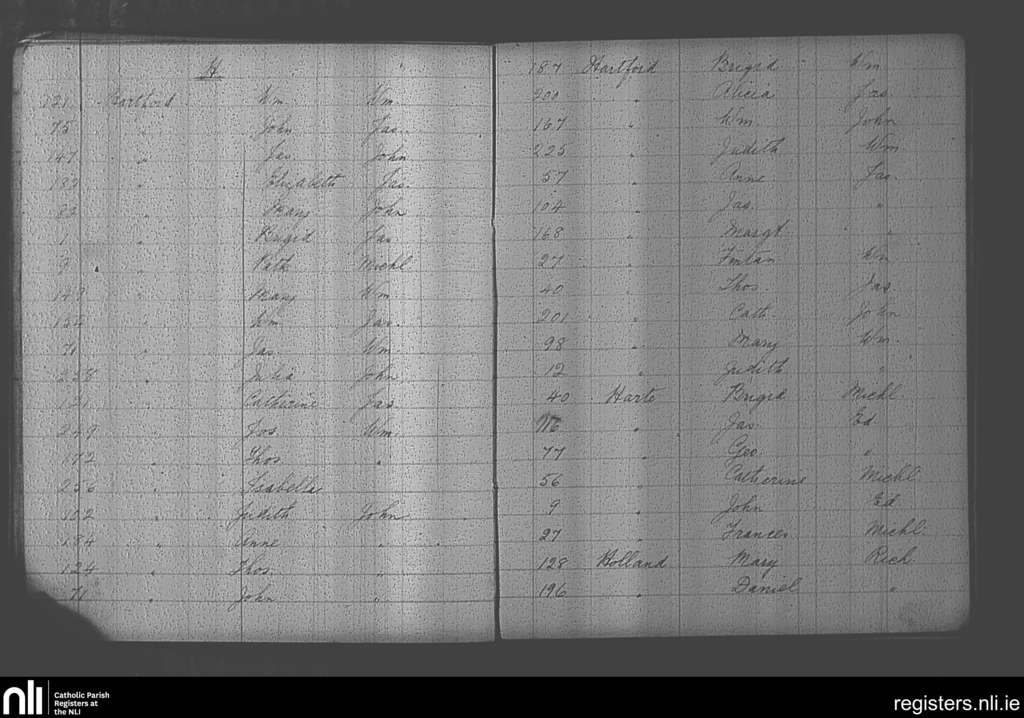 H
121 Hartford Wm. Wm.
75 " John Jas.
147 " Jas. John
183 " Elizabeth Jas.
83 " Mary John
1 " Brigid Jas.
9 " Patk. Michl.
149 " Mary Wm.
154 " Wm. Jas.
71 " Jas. Wm.
238 " Julia John
121 " Catherine Jas.
249 " Jos. Wm.
172 " Thos. "
256 " Isabella
102 " Judith John
184 " Anne "
124 " Thos. "
71 " John "
187 Hartford Brigid Wm
200 " Alicia Jas.
167 " Wm. John
225 " Judith Wm
57 " Anne Jas.
104 " Jas. "
168 " Margt "
27 " Fintan Wm
40 " Thos. Jas
201 " Cath. John
98 " Mary Wm.
12 " Judith "
40 Harte Brigid Michl
" Jas. Ed
77 " Geo. "
56 " Catherine Michl.
9 " John Ed
27 " Frances Michl.
128 Holland Mary Rich
196 " Daniel "
nli
Catholic Parish
Registers at
the NLI
registers.nli.ie